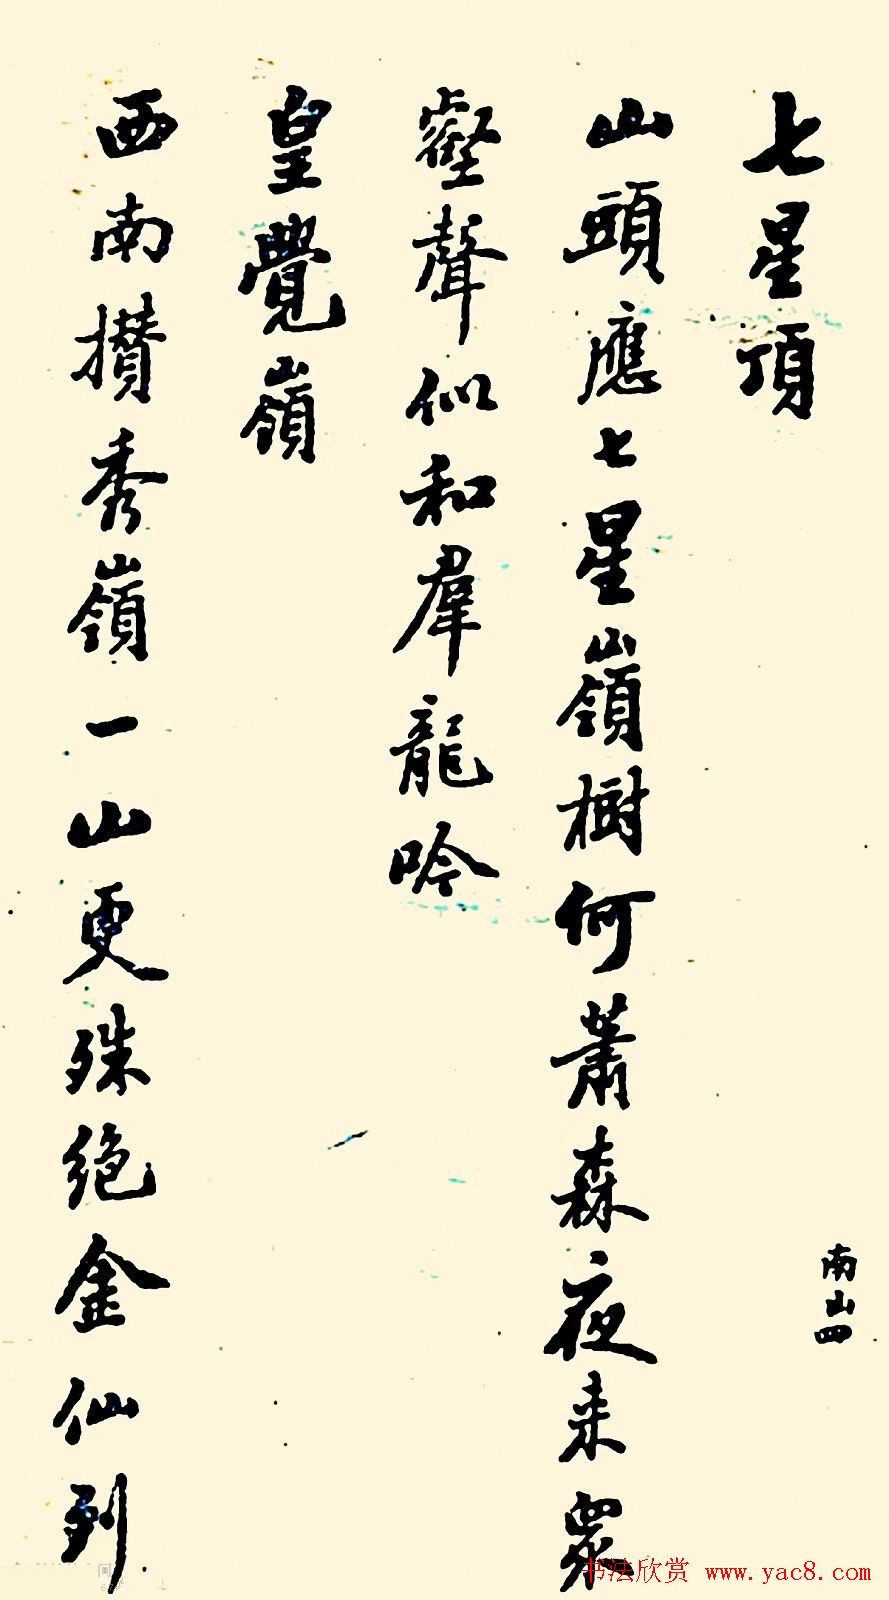 七星頂
山頭應七星嶺樹何蕭森夜来衆
壑聲似和羣龍吟
皇覺嶺
西南攢秀嶺一山更殊絶金仙列
南山四
书法欣赏 www.yac8.com